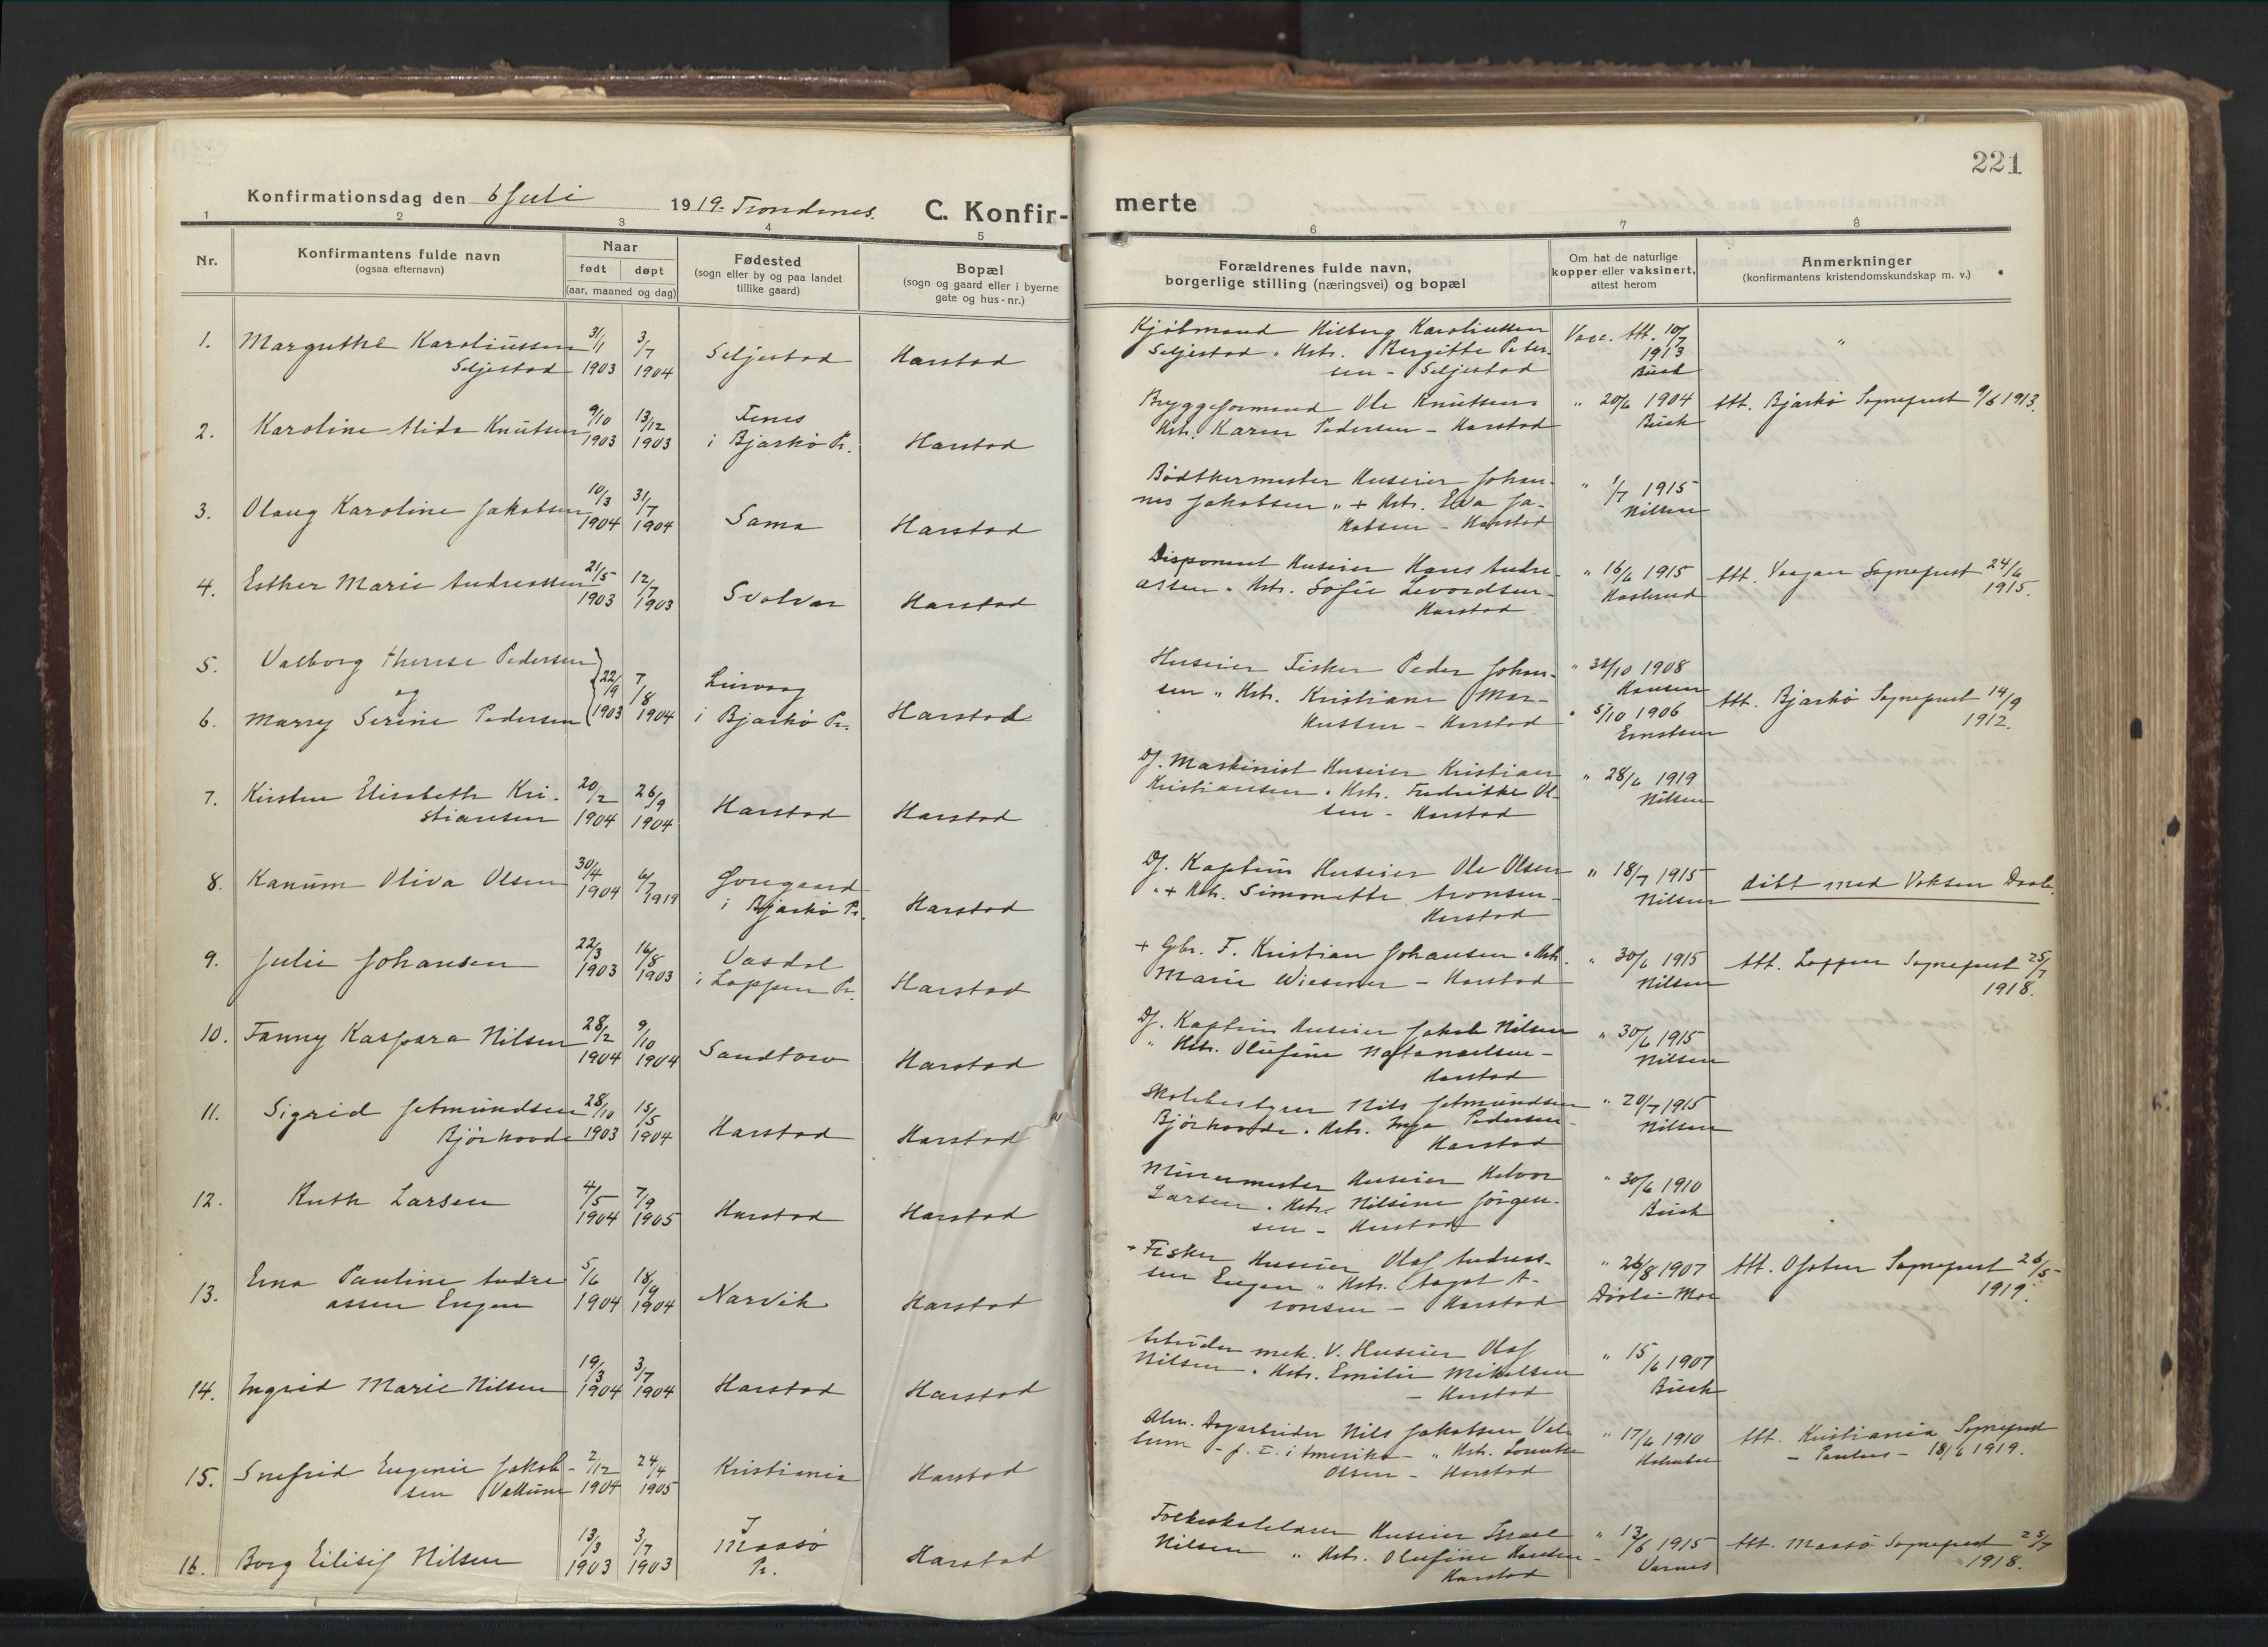 221
Konfirmationsdag den 6 Juli 1919. Trondenes.
C. Konfirmerte
1 2 3 4 5 6 7 8
Nr.
Konfirmantens fulde navn
(ogsaa efternavn)
Naar
født døpt
(aar, maaned og dag)
Fødested
(sogn eller by og paa landet
tillike gaard)
Bopæl
(sogn og gaard eller i byerne
gate og hus-nr.)
Forældrenes fulde navn,
borgerlige stilling (næringsvei) og bopæl
Om hat de naturlige
kopper eller vaksinert,
attest herom
Anmerkninger
(konfirmantens kristendomskundskap m. v.)
1. Margrethe Karoliussen 31/1 3/7 Seljestad Harstad Kjøbmand Hilberg Karoliussen Vacc. Att. 10/7 "
Seljestad 1903 1904 Seljestad " Hstr. Bergitte Peter- 1913
sen - Seljestad Buch
2. Karoline Alida Knutsen 9/10 13/12 Fenes Harstad Bryggeformand Ole Knutsen " 20/6 1904 Att. Bjarkö Sogneprest 9/6 1913.
1903 1903 i Bjarkö Pr. Hstr. Karen Pedersen - Harstad Buch
3. Olaug Karoline Jakobsen 10/3 31/7 Sama Harstad Bödtkermester Huseier Johan- " 1/7 1915
1904 1904 nes Jakobsen " + Hstr. Elva Ja- Nilsen
kobsen - Harstad
4. Esther Marie Andreassen 21/5 12/7 Svolvær Harstad Disponent Huseier Hans Andre- " 16/6 1915 Att. Vaagan Sogneprest 24/6
1903 1903 assen " Hstr. Sofie Levordsen - 1915.
Harstad
5. Valborg Therese Pedersen Huseier Fisker Peder Johan- " 31/10 1908
og 22/9 7/8 Harstad sen " Hstr. Kristiane Mar- Hansen
6. Marry Serine Pedersen 1903 1904 i Bjarkö Pr. kussen - Harstad " 5/10 1906 Att. Bjarkö Sogneprest 14/9
Ernstsen 1912.
7. Kirsten Elisabeth Kri- 20/2 26/9 Harstad Harstad Df. Maskinist Huseier Kristian " 28/6 1919
stiansen 1904 1904 Kristiansen " Hstr. Fredrikke Ol- Nilsen
sen - Harstad
8. Kanum Oliva Olsen 30/4 6/7 Harstad Df. Kaptein Huseier Ole Olsen " 18/7 1915 döbt med Voksen Daab.
1904 1919 i Bjarkö Pr. " + Hstr. Simonette Aronsen - Nilsen
Harstad
9. Julie Johansen 22/3 16/8 Vasdal Harstad + Gbr. F. Kristian Johansen " Hstr. " 30/6 1915 Att. Loppen Sogneprest 25/7
1903 1903 i Loppen Pr. Marie Wiesener - Harstad Nilsen 1918.
10. Fanny Kaspara Nilsen 28/2 9/10 Sandtorv Harstad Df. Kaptein Huseier Jakob Nilsen " 30/6 1915
1904 1904 " Hstr. Olufine Natanaelsen - Nilsen
Harstad
11. Sigrid Jetmundsen 28/10 15/5 Harstad Harstad Skolebestyrer Nils Jetmundsen " 20/7 1915
Björhovde 1903 1904 Björhovde. Hstr. Inga Pedersen - Nilsen
Harstad
12. Ruth Larsen 4/5 7/9 Harstad Harstad Minermester Huseier Halvor " 30/6 1910
1904 1905 Larsen. Hstr. Nilsine Jörgen- Buch
sen - Harstad
13. Erna Pauline Andre 5/6 18/9 Narvik Harstad + Fisker Huseier Olaf Andreas- " 26/8 1907 Att. Ofoten Sogneprest 26/5
assen Eugen 1904 1904 sen Eugen " Hstr. Aagot A- 1919.
ronsen - Harstad
14. Ingrid Marie Nilsen 19/3 3/7 Harstad Harstad Arbeider mek. V. Huseier Olaf " 15/6 1907
1904 1904 Nilsen. Hstr. Emilie Mikalsen Buch
- Harstad
15. Snefrid Eugenie Jakob- 2/12 24/4 Kristiania Harstad Alm. Dagarbeider Nils Jakobsen Val- " 17/6 1910 Att. Kristiania Sogneprest
sen Vallum 1904 1905 lum - f. T. i Amerika - " Hstr. - Paulus - 18/6 1919.
Olsen - Harstad
16. Borg Eilisif Nilsen 13/3 3/7 Maasö Harstad Folkeskolelærer Huseier Israel " 13/6 1915 Att. Maasö Sogneprest 25/7
1903 1903 Pr. Nilsen " Hstr. Olufine Hansen - Varnes 1918.
Harstad